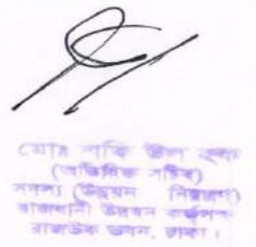 মোঃ সাকি উল হক
(অতিরিক্ত সচিব)
সদস্য (উন্নয়ন নিয়ন্ত্রণ)
রাজধানী উন্নয়ন কর্তৃপক্ষ
রাজউক ভবন, ঢাকা।